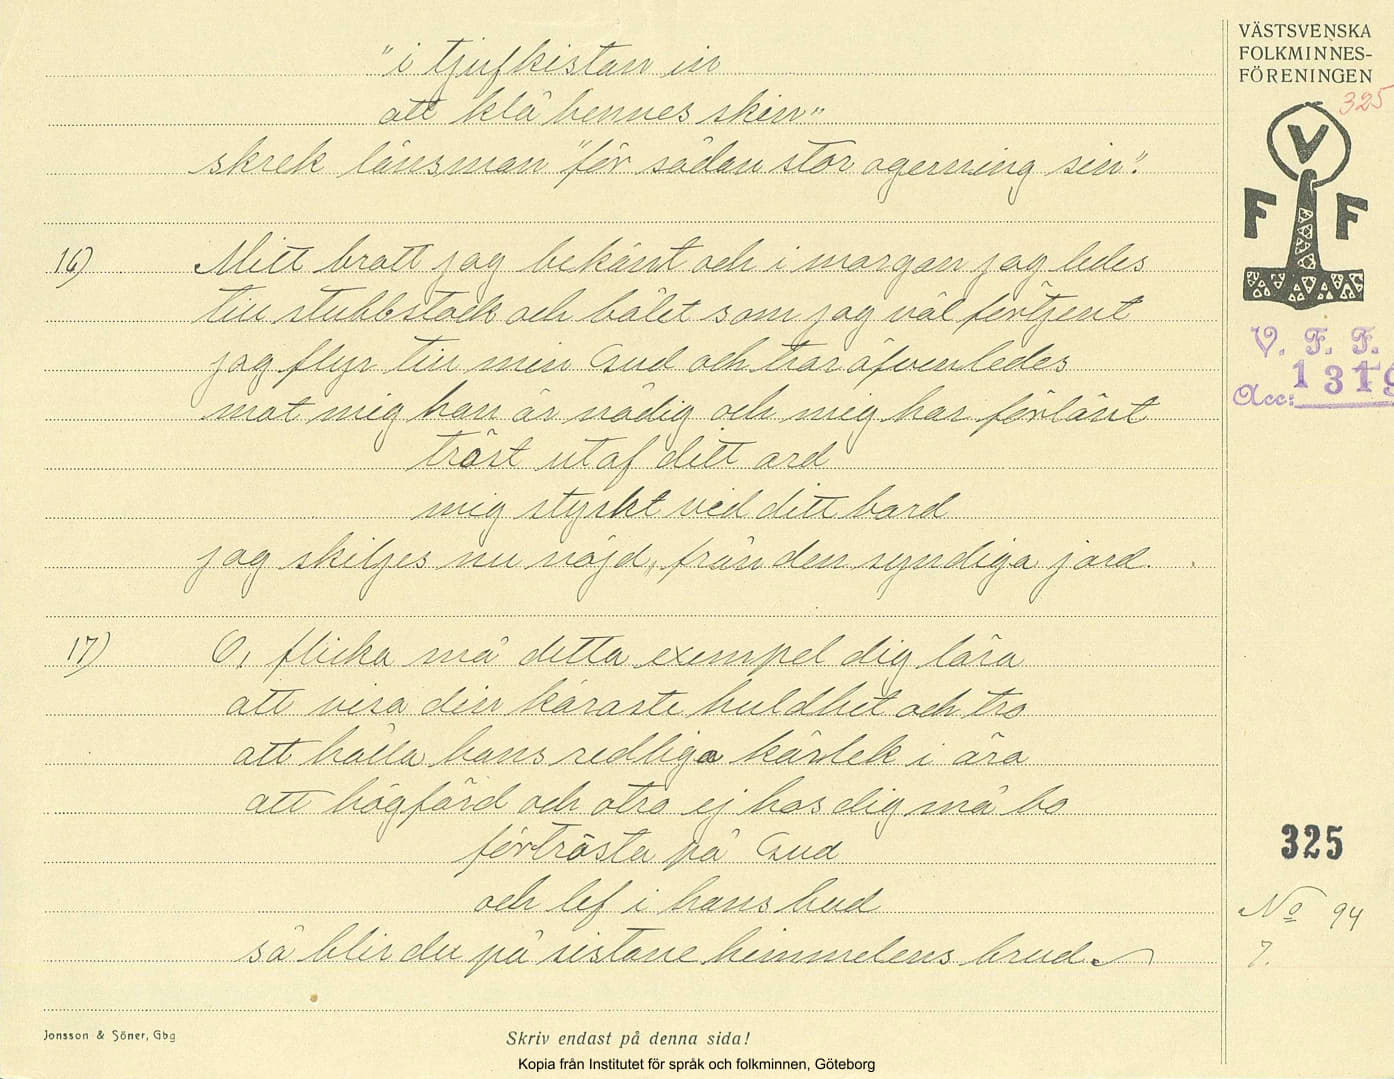 "i tjufkistan in
att klä hennes skin"
skrek länsman "för sådan stor ogerning sin".
16) Mitt brott jag bekänt och i morgon jag ledes
till stubbstock och bålet som jag väl förtjent
jag flyr till min Gud och tror äfvenledes
mot mig han är nådig och mig har förlänt
tröst utaf ditt ord
mig styrkt vid ditt bord
jag skiljes nu nöjd, från den syndiga jord.
17) O, flicka må detta exempel dig lära
att visa din käraste huldhet och tro
att hålla hans redliga kärlek i ära
att högfärd och otro ej hos dig må bo
förtrösta på Gud
och lef i hans bud
så blir du på sistone himmelens brud.
VÄSTSVENSKA
FOLKMINNES-
FÖRENINGEN
325
V
F F
V. F. F.
Acc: 1319
325
No 94
7.
Jonsson & Söner, Gbg
Skriv endast på denna sida!
Kopia från Institutet för språk och folkminnen, Göteborg